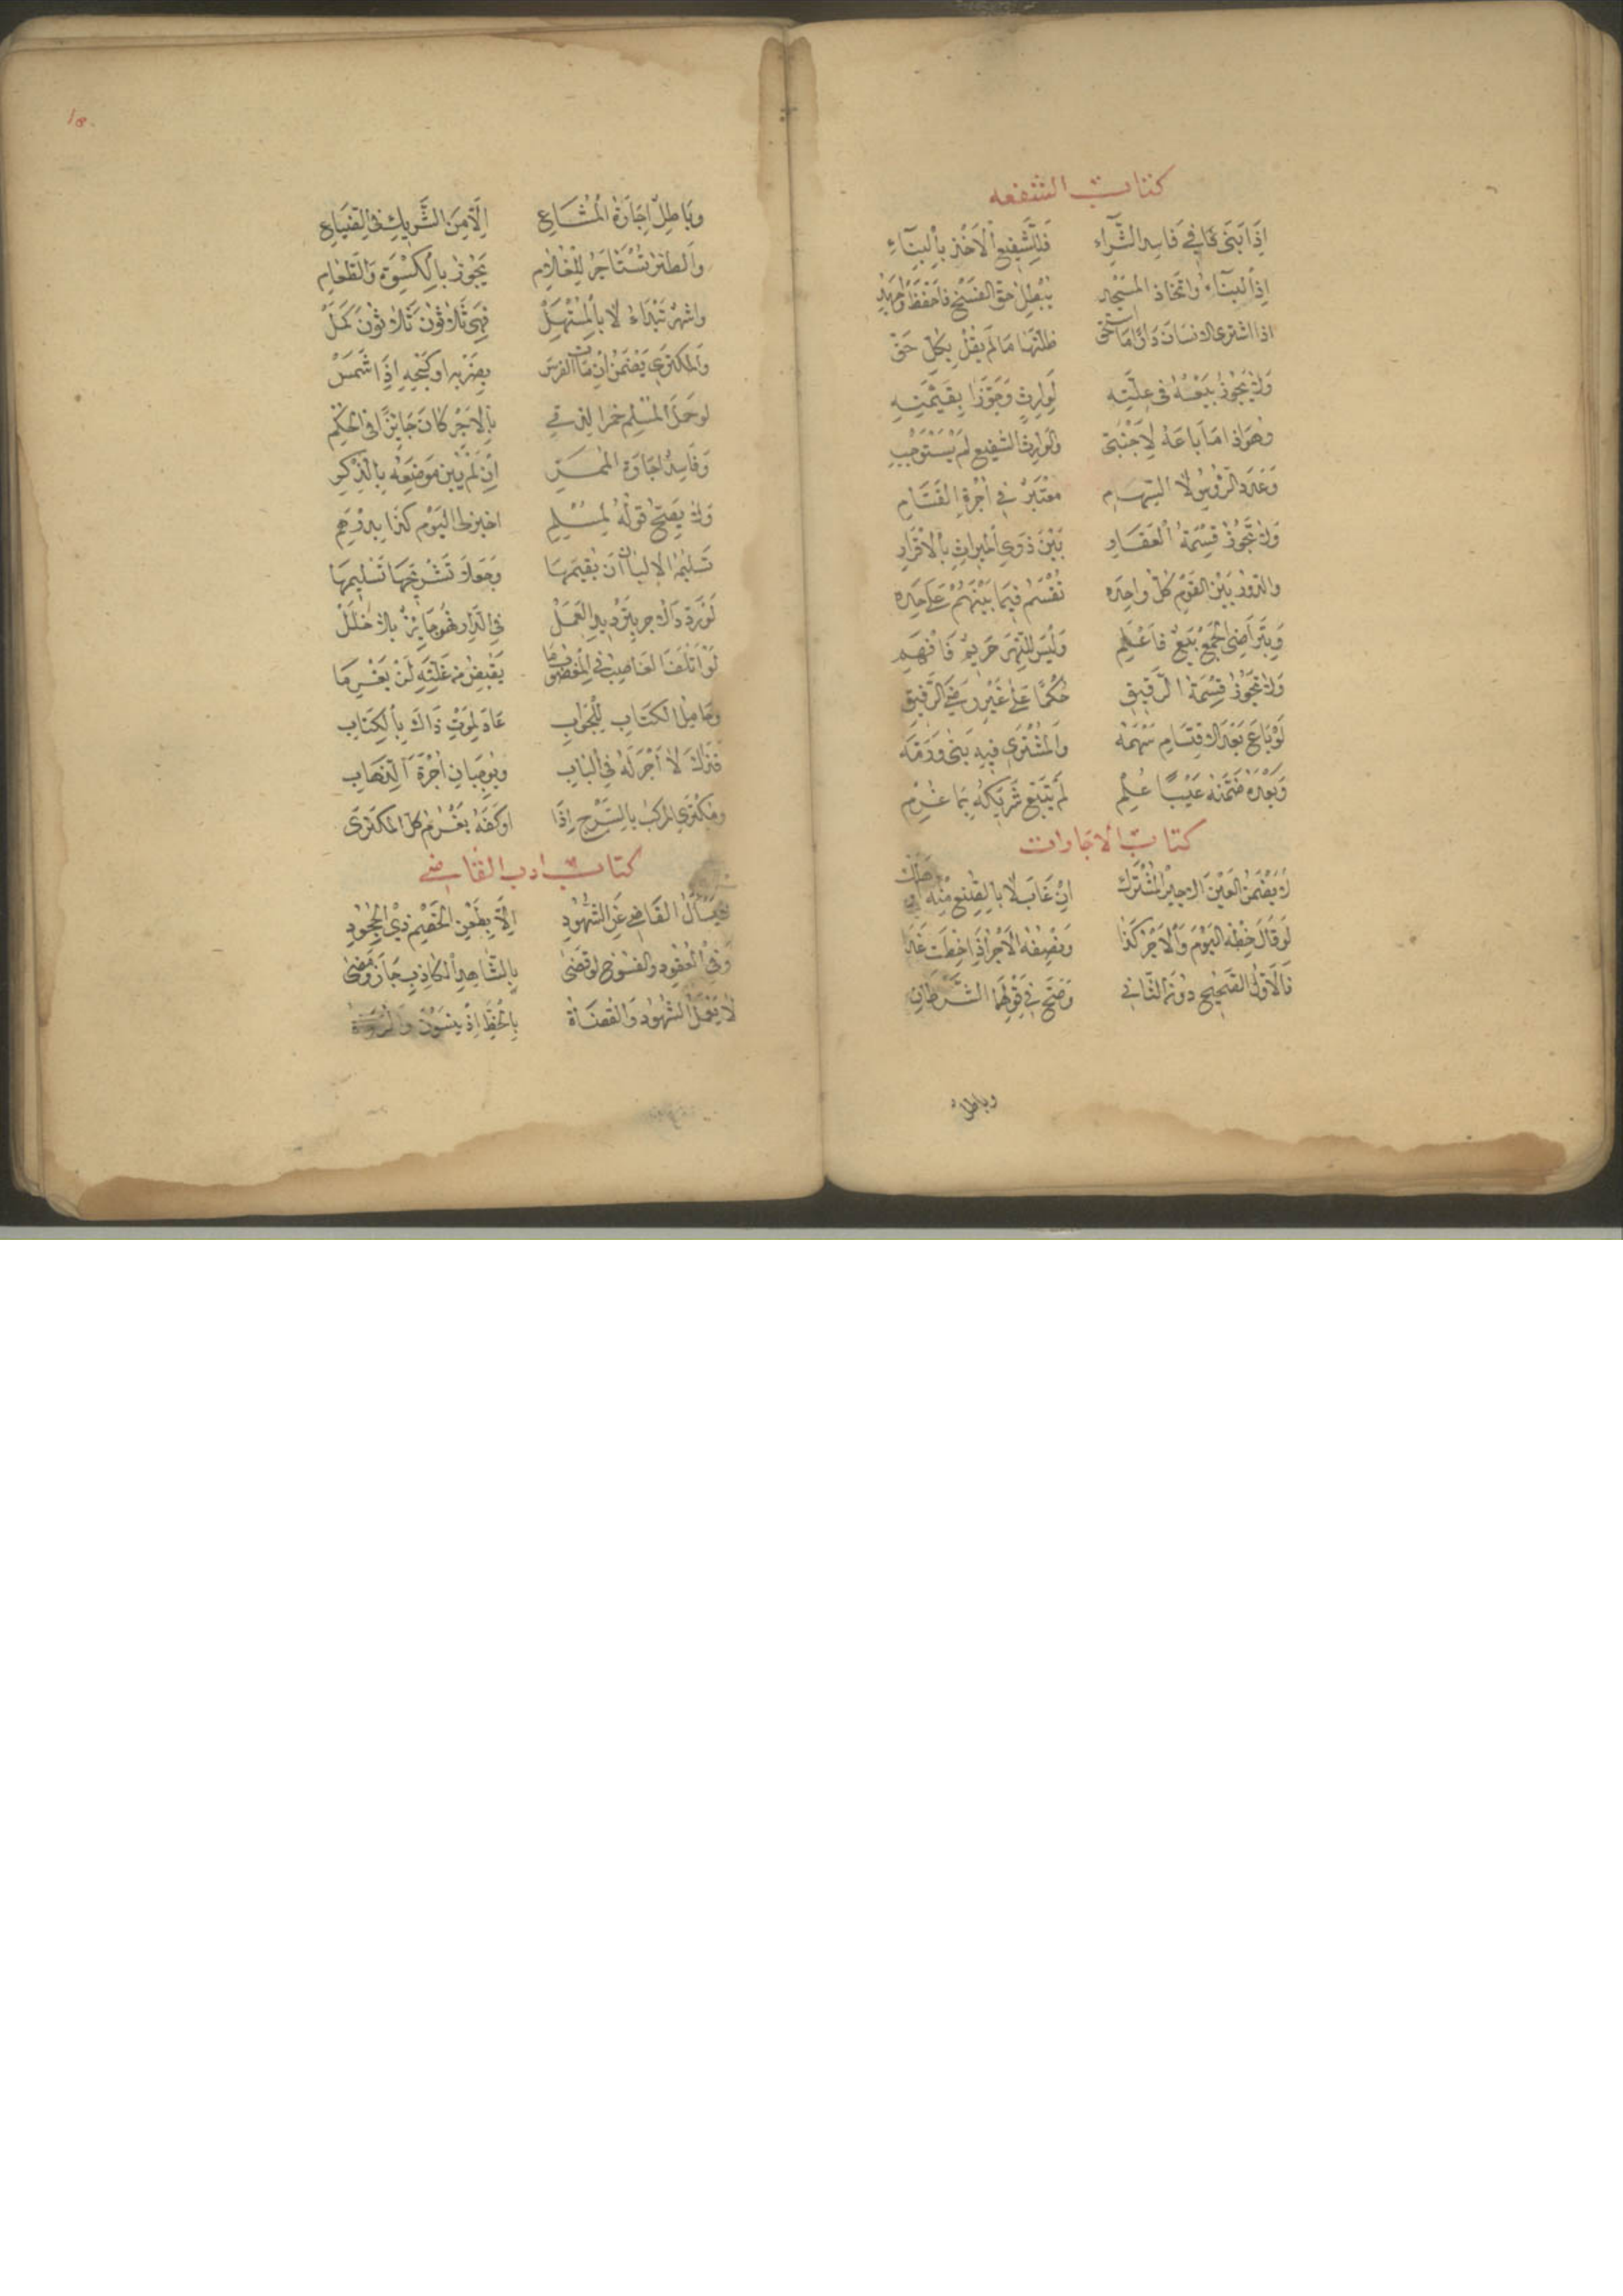 كتاب الشفعه
اِذَا بَنَى فى فَاسِدِ الشِّرَاء فَلِلشَّفِيعِ الْاَخْذُ بِالْبِنَاءِ
اِذِ الْبِنَاءُ وَاتِّخَاذُ الْمَسْجِدِ يُبْطِلُ حَقَّ الْفَسْخِ فَاحْفَظْ
اذا اشترى الانسان دَارًا مَا اسْتَحَقّ ظَنَّهَا مَا لَمْ يَقُلْ بِكُلِّ حَقّ
وَلَا يَجُوزُ بَيْعُهُ فى عِلَّتِه لِوَارِثٍ وَجَوَّزَا بِقِيمَتِهِ
وهو اذا مَا بَاعَهُ لِاَجْنَبِىّ وَالْوَارِثُ الشَّفِيعُ لَمْ يَسْتَوْجِبِ
وَعَدَدُ الرُّؤُسِ لَا السِّهَامِ مُعْتَبَرٌ فى اُجْرَةِ الْقَسَّامِ
وَلَا تَجُوزُ قِسْمَةُ الْعَقَارِ بَيْنَ ذَوِى الْمِيرَاثِ بِالْاِقْرَارِ
وَالدُّورُ بَيْنَ الْقَوْمِ كُلّ وَاحِدَه تُقْسَمُ فِيمَا بَيْنَهُمْ عَلَى حِدَه
وَبِتَرَاضِى الْجَمْعِ بَيْعٌ فَاعْلَمِ وَلَيْسَ لِلنَّهْرِ حَرِيمٌ فَافْهَمِ
وَلَا تَجُوزُ قِسْمَةُ الرَّقِيقِ حُكْمًا عَلَى غَيْرِ رِضَى الرَّفِيقِ
لَوْ بَاعَ بَعْدَ الِاقْتِسَامِ سَهْمَهُ وَالْمُشْتَرِى فِيهِ بَنَى وَرَمَّهُ
وَبَعْدَهُ ضَمَّنَهُ عَيْبًا عُلِمْ لَمْ يَتْبَعْ شَرِيكَهُ بِمَا غُرِمْ
كتاب الاجارات
لَا يَضْمَنُ الْعَيْنَ الْاَجِيرُ الْمُشْتَرَكْ اِنْ غَابَ لَا بِالصُّنْعِ مِنْهُ
لَوْ قَالَ خِطْهُ الْيَوْمَ وَالْاَجْرُ كَذَا وَنِصْفُهُ الْاَجْرُ اِذَا خِطْتَ غَدَا
فَالْاَوَّلُ الصَّحِيحُ دُونَ الثَّانِى وَصَحَّ فى قَوْلِهِمَا الشَّرْطَانِ
وباطل
وَبَاطِلٌ اِجَارَةُ الْمُشَاعِ اِلَّا مِنَ الشَّرِيكِ فى الضِّيَاعِ
وَالظِّئْرُ تُسْتَاْجَرُ لِلْغُلَامِ يَجُوزُ بِالْكِسْوَةِ وَالطَّعَامِ
وَاَشْهُرٌ تُبْدَاءُ لَا بِالْمُسْتَهَلّ فَهِىَ ثَلَاثُونَ ثَلَاثُونَ كَمَلْ
وَالْمُكْتَرِى يَضْمَنُ اِنْ مَاتَ الْفَرَسْ بِضَرْبِهِ اَوْ كَبْحِهِ اِذَا شَمَسْ
لَوْ حَمَلَ الْمُسْلِمُ خَمْرًا لِذِمِّى بِالْاَجْرِ كَانَ جَايِزًا فى الْحُكْمِ
وَفَاسِدٌ اِجَارَةُ الْمَمَرِّ اِنْ لَمْ يُبَيَّنْ مَوْضِعُهُ بِالذِّكْرِ
وَلَا يَصِحُّ قَوْلُهُ لِمُسْلِمِ اخْبِزْ لِى الْيَوْمَ كَذَا بِدِرْهَمِ
تَسْلِيمُهُ الْاَلْبَانَ اَنْ يُقِيمَهَا وَجَعَلَا تَشْرِيجَهَا تَسْلِيمَهَا
لَوْ رَدَّ ذَاكَ اَجْرَ بِتَرْدِيدِ الْعَمَلْ فى الدَّارِ فَهُوَ جَايِزٌ بِلَا خَلَلْ
لَوْ اَتْلَفَ الْغَاصِبُ فى الْمَغْصُوبِ مَا يَقْبِضُ مِنْ غَلَّتِهِ لَنْ يَغْرَمَا
وَحَامِلُ الْكِتَابِ لِلْجَوَابِ عَادَ لِمَوْتِ ذَاكَ بِالْكِتَابِ
فَذَاكَ لَا اَجْرَ لَهُ فى الْبَابِ وَيُوجِبَانِ اُجْرَةَ الذَّهَابِ
وَمُكْتَرِى الْمَرْكَبِ بِالسَّرْجِ اِذَا اَوْكَفَهُ يَغْرَمُ كُلَّ الْمُكْتَرَى
كتاب ادب القاضى
يَسْاَلُ الْقَاضِى عَنِ الشُّهُودِ اِلَّا بِطَعْنِ الْخَصْمِ ذِى الْجُحُودِ
وَفى الْعُقُودِ وَالْفُسُوخِ لَوْ قَضَى بِالشَّاهِدِ الْكَاذِبِ جَازَ وَمَضَى
لَا يَعْمَلُ الشُّهُودُ وَالْقُضَاةُ بِالْخَطِّ اِذْ يَنْسَوْنَ وَالرُّوَاةُ